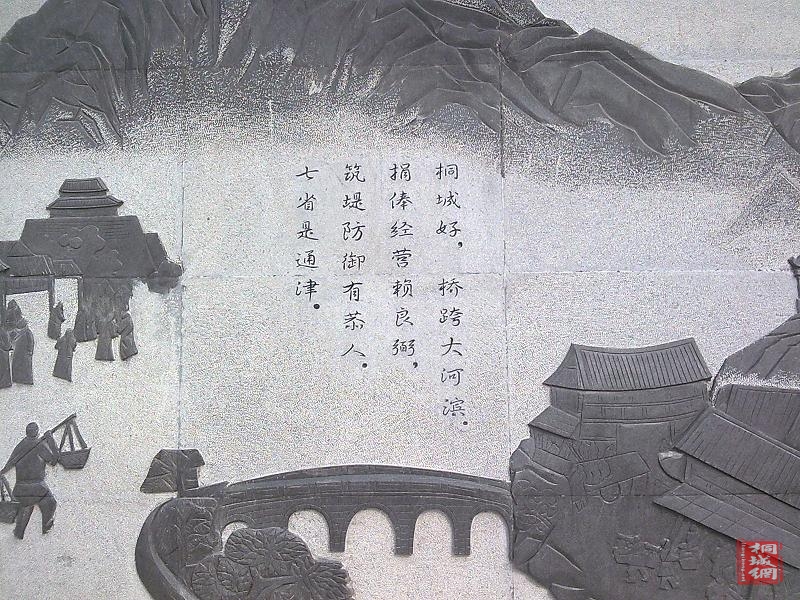 桐城好，桥跨大河滨。
捐俸经营赖良弼，
筑堤防御有恭人。
七省是通津。
桐城網